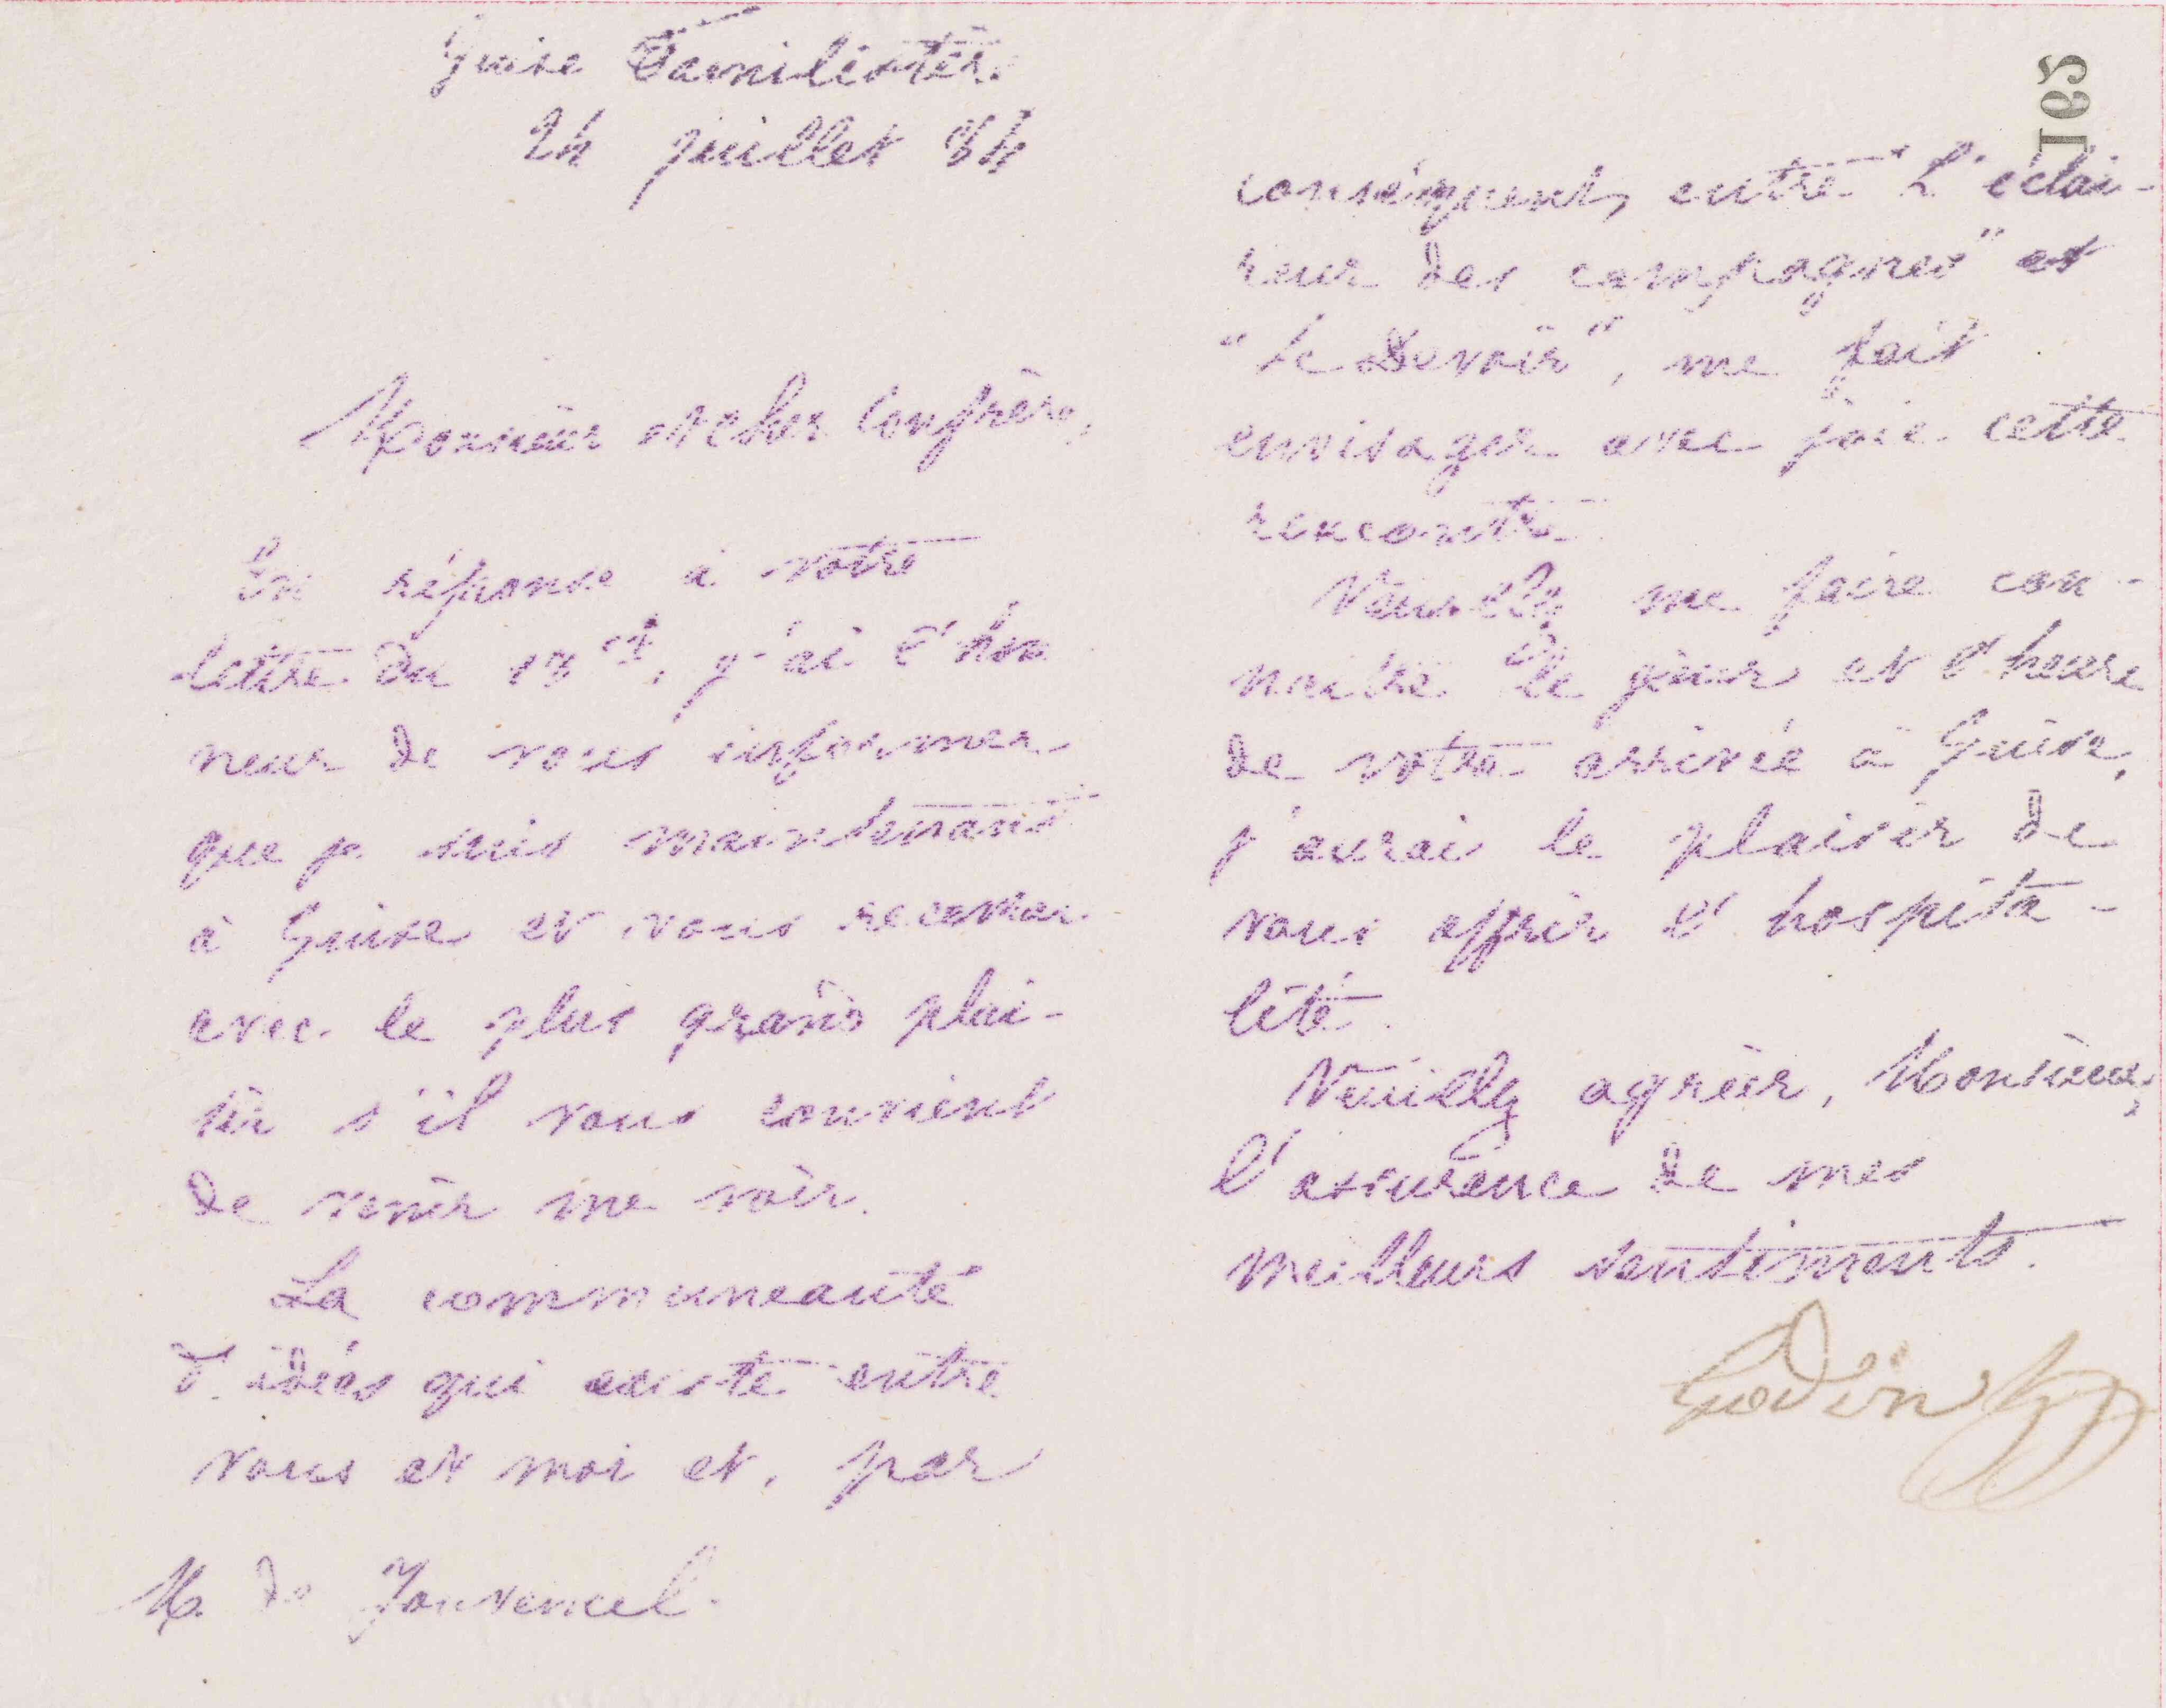 Guise Familistère
24 juillet 84
Monsieur et cher Confrère,
En réponse à votre
lettre du 13 ct, j'ai l'hon
neur de vous informer
que je suis maintenant
à Guise et vous recevrai
avec le plus grand plai-
sir s'il vous convient
de venir me voir.
La communeauté
d'idées qui existe entre
vous et moi et, par
M. de Jouvencel.
165
conséquent, entre "L'éclai-
reur des campagnes" et
"Le Devoir", me fait
envisager avec joie cette
rencontre.
Veuillez me faire con-
naître le jour et l'heure
de votre arrivée à Guise,
j'aurai le plaisir de
vous offrir l'hospita-
lité.
Veuillez agréer, Monsieur,
l'assurance de mes
meilleurs sentiments.
Godin